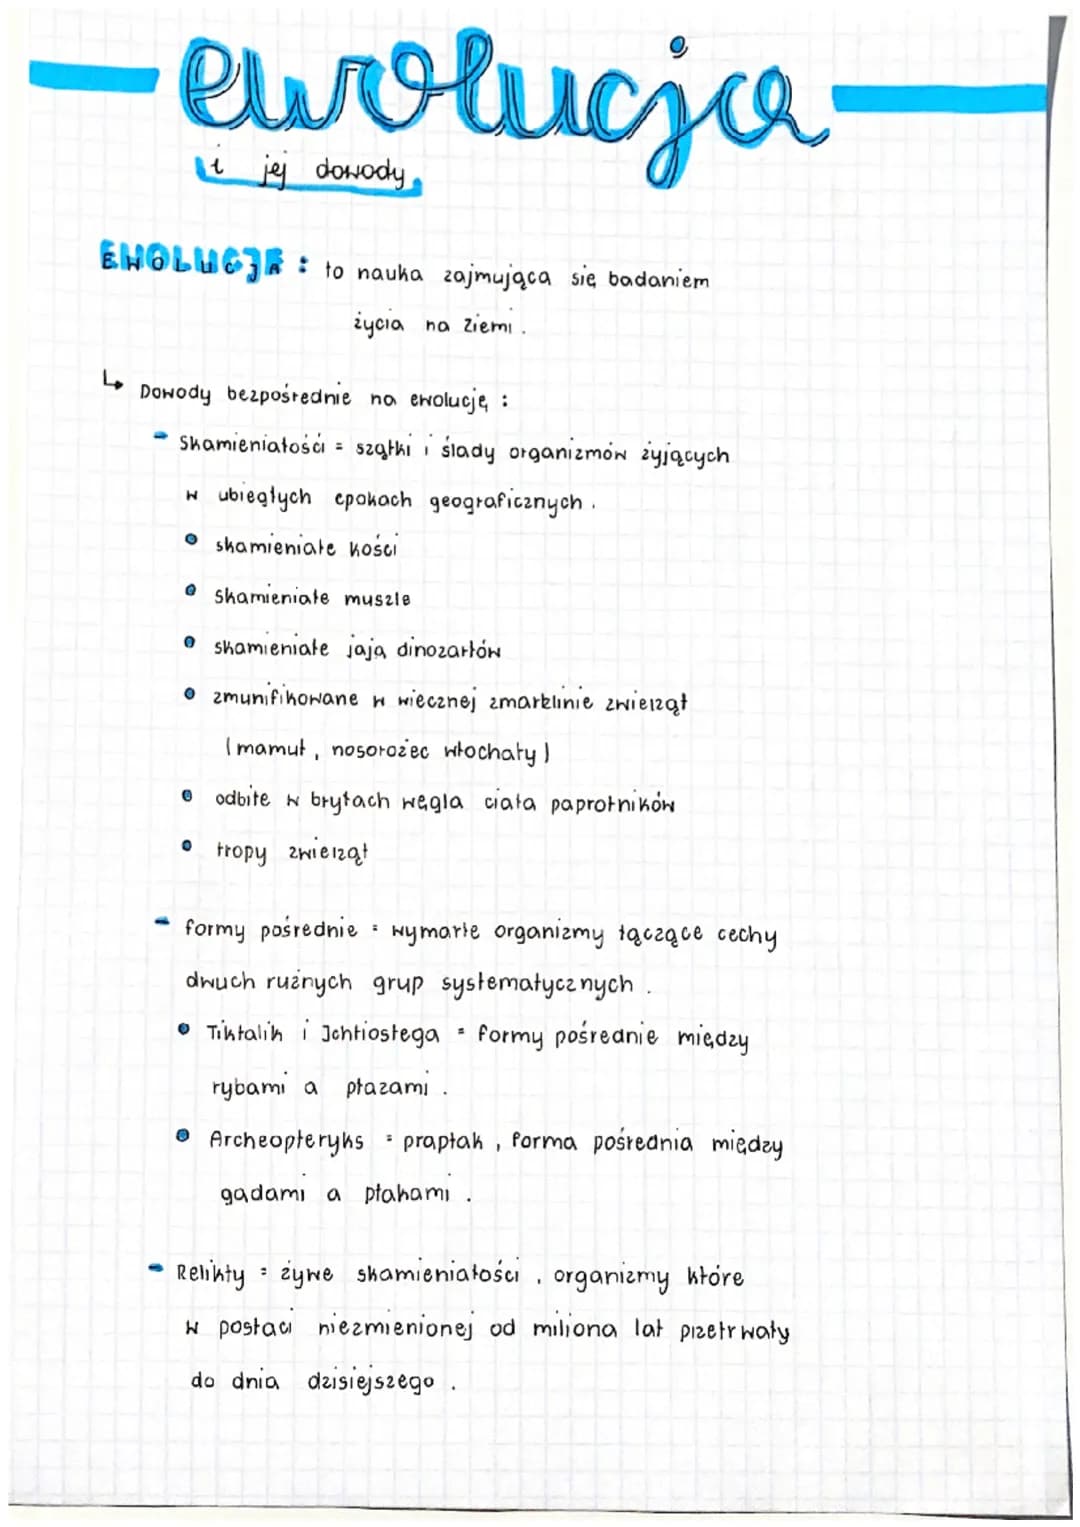 ewolucja
i jej dowody
EWOLUCJA : to nauka zajmująca się badaniem
życia na Ziemi .
↳ Dowody bezpośrednie na ewolucję :
- Skamieniałości = szątki i ślady organizmów żyjących
w ubiegłych epokach geograficznych .
• skamieniałe kości
• Skamieniałe muszle
• skamieniałe jają dinozarłów
• zmunifikowane w wiecznej zmarzlinie zwierząt
(mamut , nosorożec włochaty)
• odbite w bryłach węgla ciała paprotników
• tropy zwierząt
- formy pośrednie = wymarłe organizmy łączące cechy
dwuch rużnych grup systematycznych .
• Tiktalik i Ichtiostega = formy pośrednie między
rybami a płazami .
• Archeopteryks = praptak , forma pośrednia między
gadami a ptakami .
- Relikty = żywe skamieniałości , organizmy które
w postaci niezmienionej od miliona lat przetrwały
do dnia dzisiejszego .